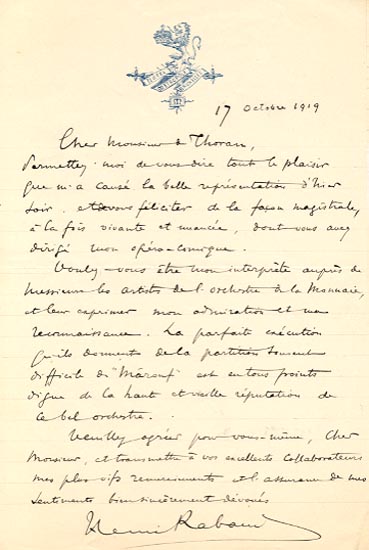 17 Octobre 1919
Cher Monsieur de Thoran,
Permettez-moi de vous dire tout le plaisir
que m'a causé la belle représentation d'hier
soir, et de vous féliciter de la façon magistrale,
à la fois vivante et nuancée, dont vous avez
dirigé mon opéra-comique.
Voulez-vous être mon interprète auprès de
Messieurs les artistes de l'orchestre de la Monnaie,
et leur exprimer mon admiration et ma
reconnaissance. La parfaite exécution
qu'ils donnent de la partition souvent
difficile de "Mârouf" est en tous points
digne de la haute et vieille réputation de
ce bel orchestre.
Veuillez agréer pour vous-même, Cher
Monsieur, et transmettre à vos excellents collaborateurs
mes plus vifs remerciements et l'assurance de mes
sentiments bien sincèrement dévoués
Henri Rabaud